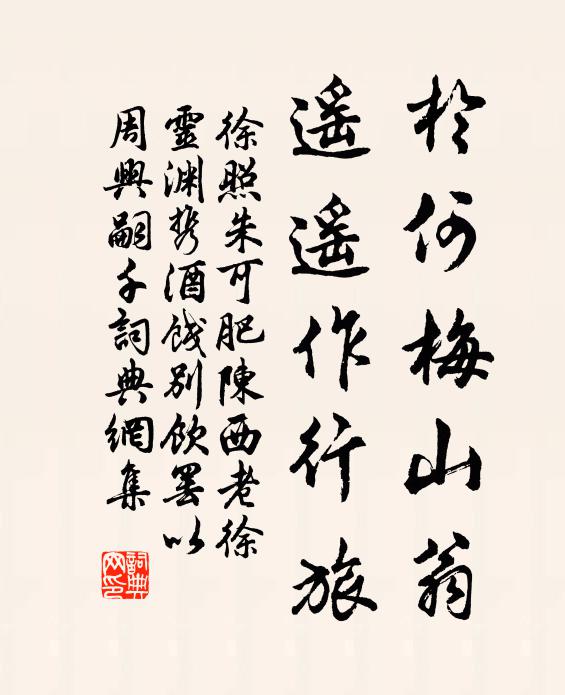 於何梅山翁
遥遥作行旅
徐照朱可肥陳西老徐
靈渊携酒餞別飲罢以
周興嗣千詞典網集
詞典
网印